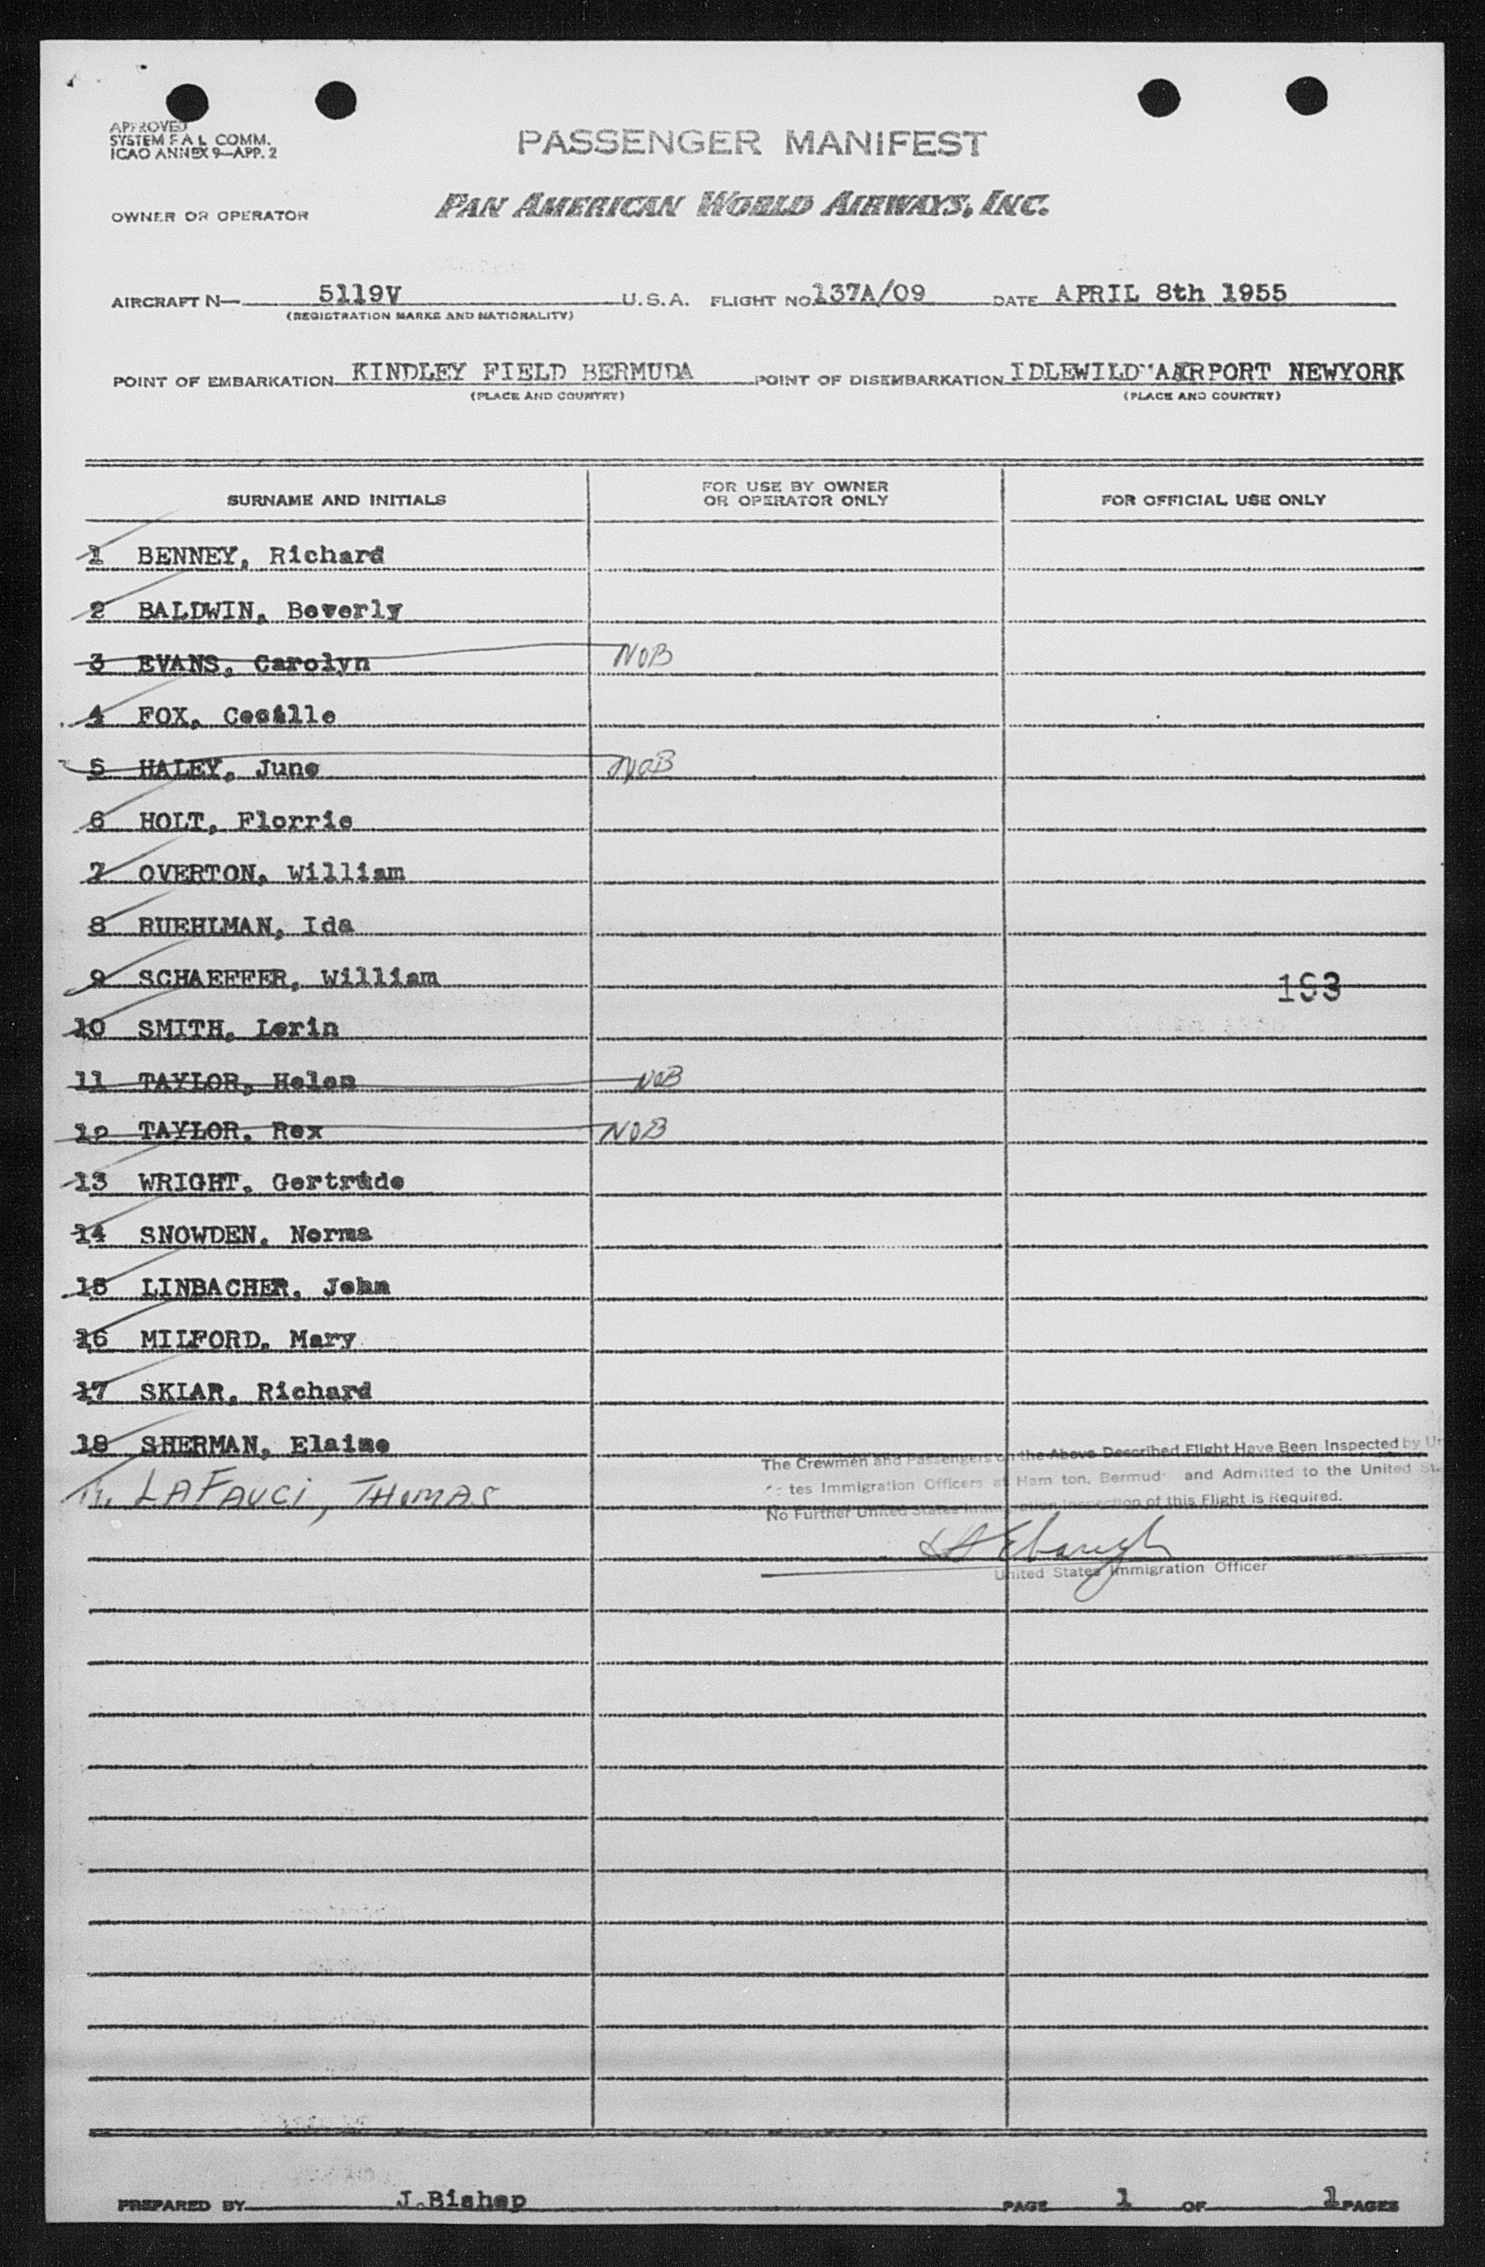 APPROVED
SYSTEM F A L COMM.
ICAO ANNEX 9—APP. 2
PASSENGER MANIFEST
OWNER OR OPERATOR
PAN AMERICAN WORLD AIRWAYS, INC.
AIRCRAFT N— 5119V U.S.A. FLIGHT NO 137A/09 DATE APRIL 8th 1955
(REGISTRATION MARKS AND NATIONALITY)
POINT OF EMBARKATION KINDLEY FIELD BERMUDA POINT OF DISEMBARKATION IDLEWILD AIRPORT NEWYORK
(PLACE AND COUNTRY) (PLACE AND COUNTRY)
SURNAME AND INITIALS
FOR USE BY OWNER
OR OPERATOR ONLY
FOR OFFICIAL USE ONLY
1 BENNEY, Richard
2 BALDWIN, Beverly
3 EVANS, Carolyn NOB
4 FOX, Cecille
5 HALEY, June NOB
6 HOLT, Florrie
7 OVERTON, William
8 RUEHLMAN, Ida
9 SCHAEFFER, William 193
10 SMITH, Lorin
11 TAYLOR, Helen NOB
12 TAYLOR, Rex NOB
13 WRIGHT, Gertrude
14 SNOWDEN, Norma
15 LINBACHER, John
16 MILFORD, Mary
17 SKLAR, Richard
18 SHERMAN, Elaine
LAFAUCI, THOMAS
The Crewmen and Passengers on the Above Described Flight Have Been Inspected by
tes Immigration Officers at Ham ton, Bermud and Admitted to the United
No Further United States Immigration Inspection of this Flight is Required.
United States Immigration Officer
PREPARED BY J.Bishop PAGE 1 OF 1 PAGES